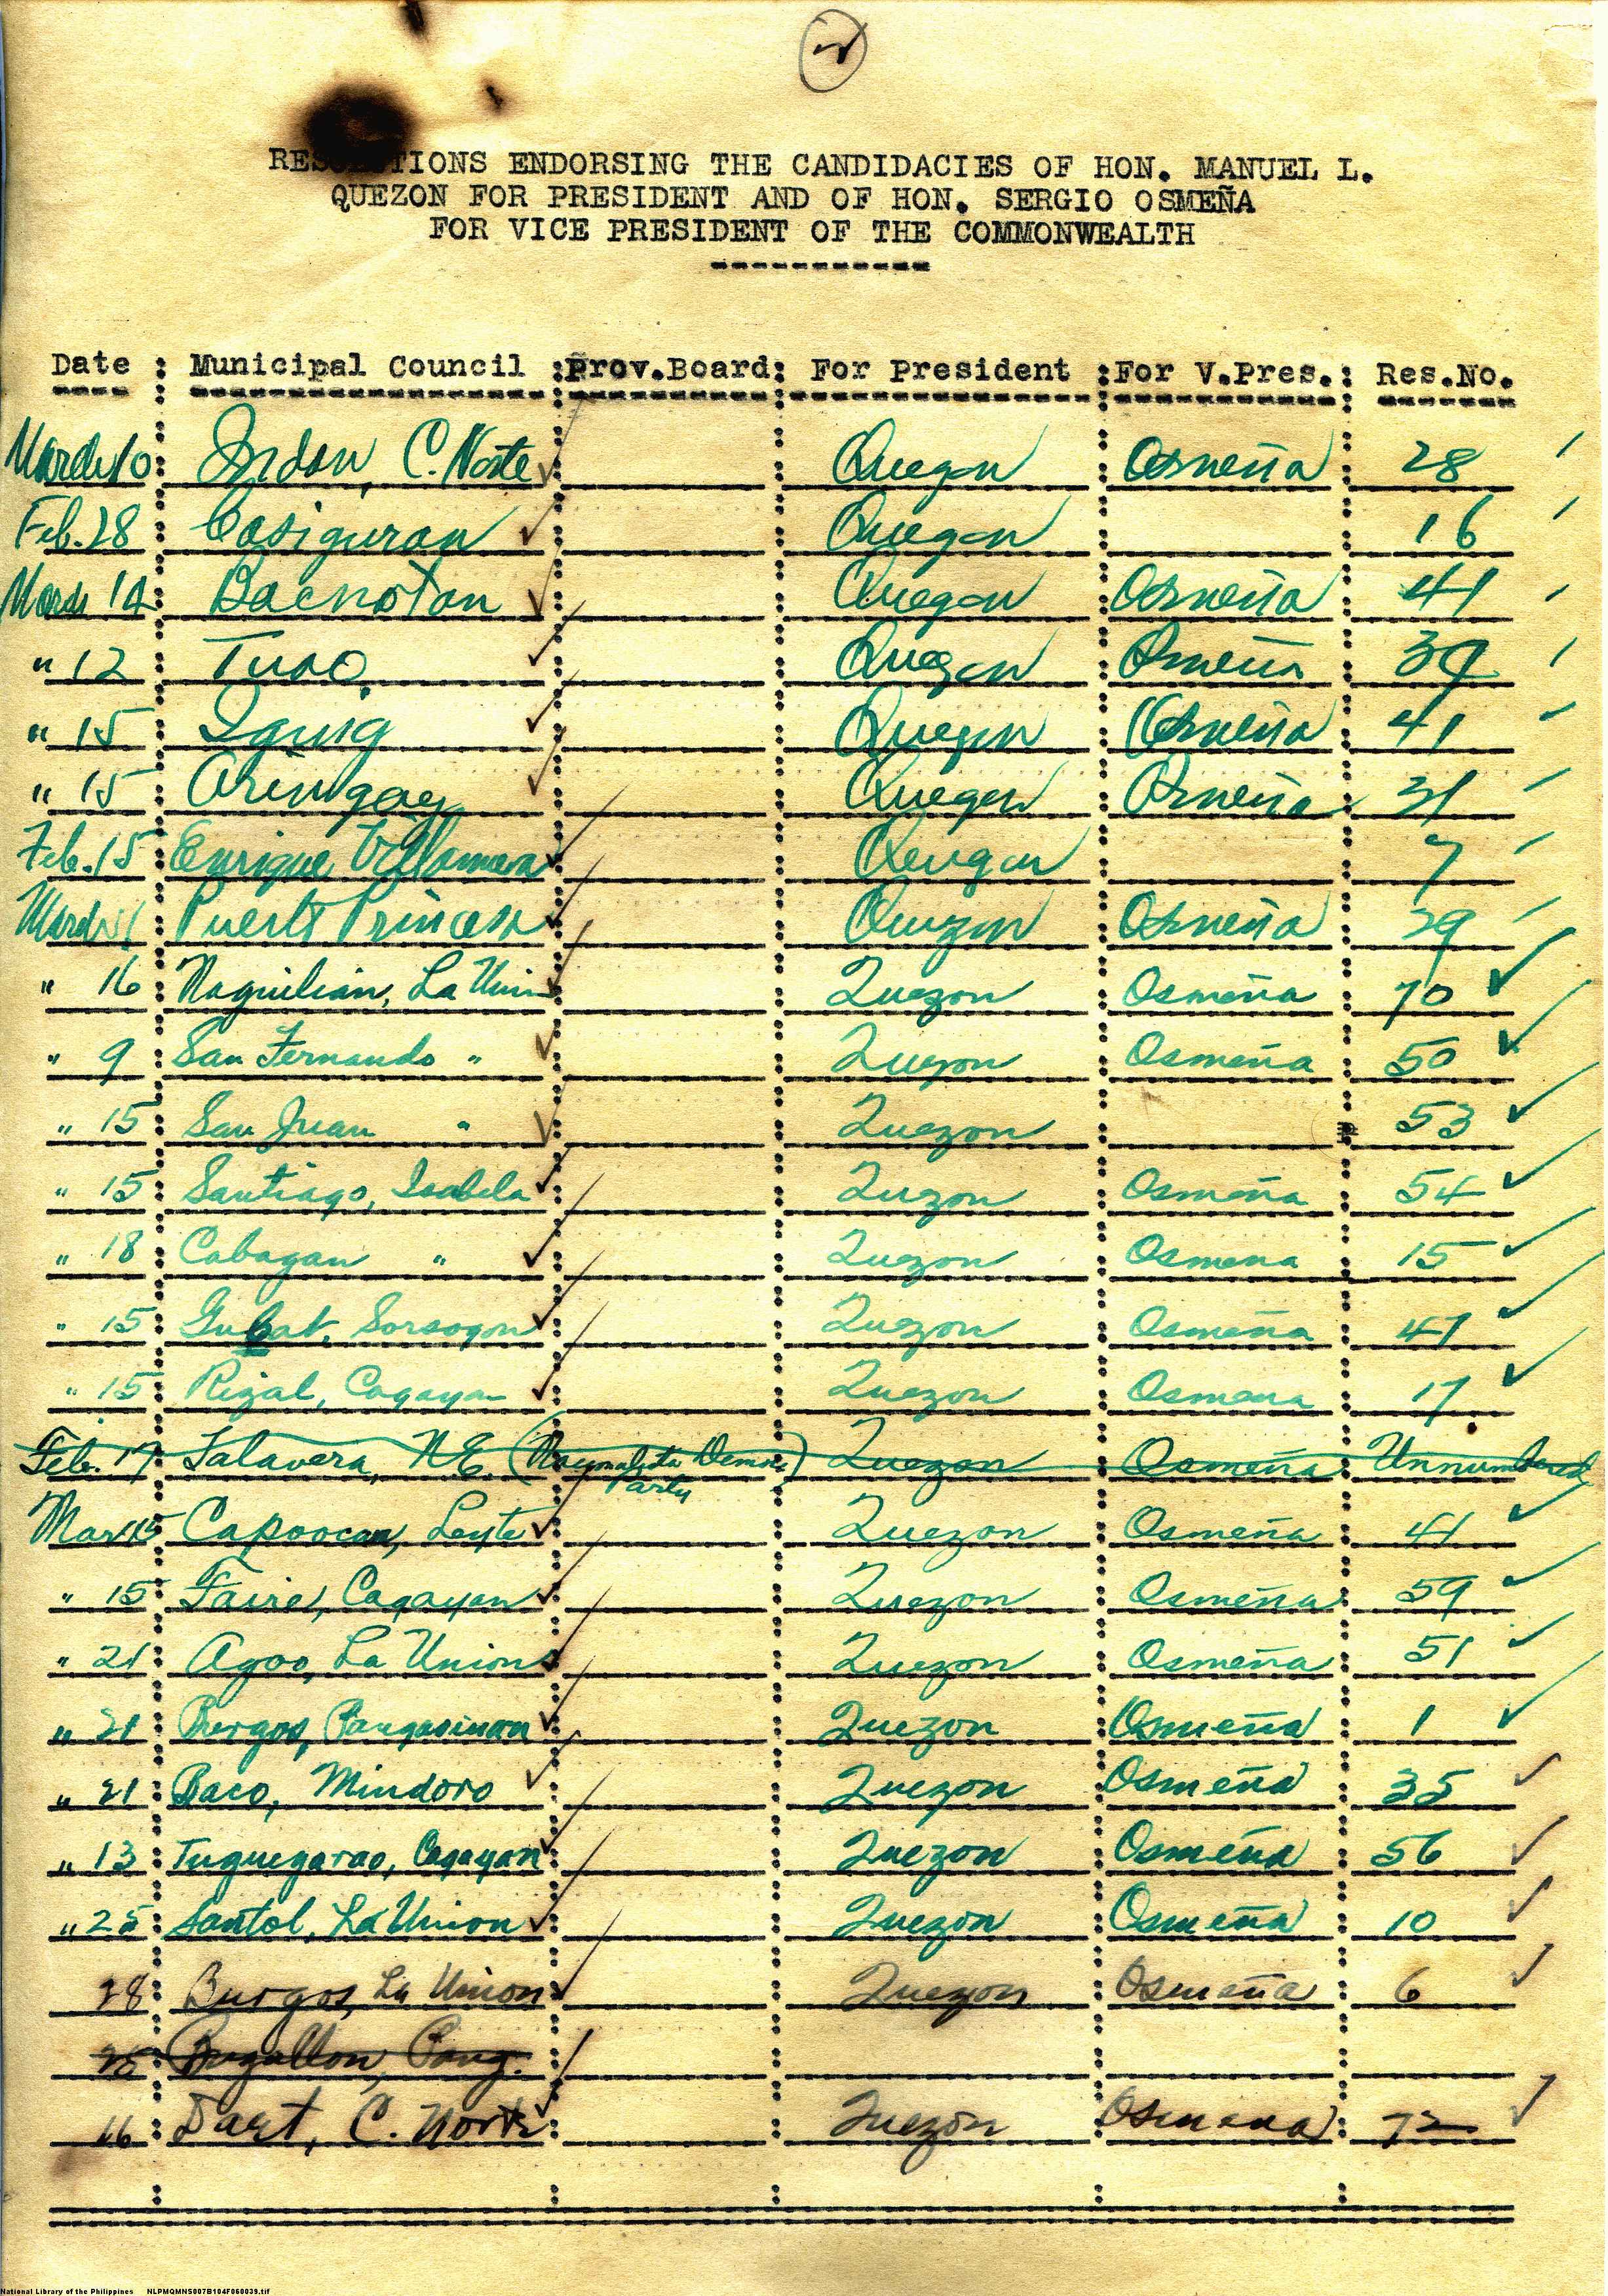 RESOLUTIONS ENDORSING THE CANDIDACIES OF HON. MANUEL L.
QUEZON FOR PRESIDENT AND OF HON. SERGIO OSMEÑA
FOR VICE PRESIDENT OF THE COMMONWEALTH
Date : Municipal Council : Prov.Board: For President : For V.Pres. : Res.No.
March 10 Indan, C. Norte Quezon Osmeña 28
Feb. 28 Casiguran Quezon 16
March 14 Bacnotan Quezon Osmeña 41
" 12 Tuao Quezon Osmeña 39
" 15 Iguig Quezon Osmeña 41
" 15 Aringay Quezon Osmeña 31
Feb. 15 Enrique Villanueva Quezon 7
March Puerto Princesa Quezon Osmeña 29
" 16 Naguilian, La Union Quezon Osmeña 70
" 9 San Fernando " Quezon Osmeña 50
" 15 San Juan " Quezon 53
" 15 Santiago, Isabela Quezon Osmeña 54
" 18 Cabagan " Quezon Osmena 15
" 15 Gubat, Sorsogon Quezon Osmeña 47
" 15 Rizal, Cagayan Quezon Osmena 17
Feb. 17 Talavera, N.E. (Nacionalista Democ. Party) Quezon Osmeña Unnumbered
Mar. 15 Capoocan, Leyte Quezon Osmeña 41
" 15 Faire, Cagayan Quezon Osmeña 59
" 21 Agoo, La Union Quezon Osmeña 51
" 21 Burgos, Pangasinan Quezon Osmeña 1
" 21 Baco, Mindoro Quezon Osmeña 35
" 13 Tuguegarao, Cagayan Quezon Osmeña 56
" 25 Santol, La Union Quezon Osmeña 10
28 Burgos, La Union Quezon Osmeña 6
Bugallon, Pang.
16 Daet, C. Norte Quezon Osmena 72
National Library of the Philippines NLPMQMNS007B104F060039.tif